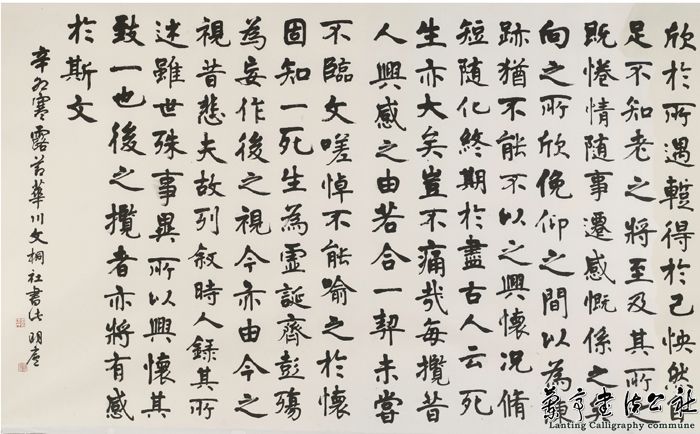 欣於所遇蹔得於己怏然自
足不知老之將至及其所之
既惓情隨事遷感慨係之矣
向之所欣俛仰之間以為陳
跡猶不能不以之興懷況脩
短隨化終期於盡古人云死
生亦大矣豈不痛哉每攬昔
人興感之由若合一契未嘗
不臨文嗟悼不能喻之於懷
固知一死生為虛誕齊彭殤
為妄作後之視今亦由今之
視昔悲夫故列敘時人錄其所
述雖世殊事異所以興懷其
致一也後之攬者亦將有感
於斯文
辛丑寒露前華川文桐社書
蘭亭書法公社
Lanting Calligraphy commune